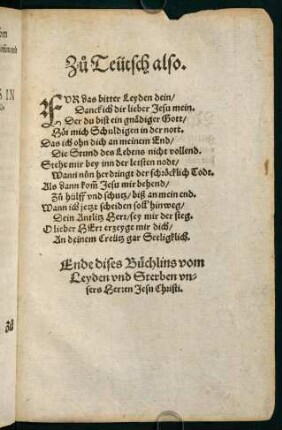 Zů Teütsch also.
FVR das bitter Leyden dein/
Danck ich dir lieber Jesu mein.
Der du bist ein gnädiger Gott/
Hör mich Schuldigen in der nott.
Das ich ohn dich an meinem End/
Die Stund des Lebens nicht vollend.
Stehe mir bey inn der letsten nodt/
Wann nůn herdringt der schröcklich Todt.
Als dann kom̃ Jesu mir behend/
Zů hülff vnd schutz/ biß an mein end.
Wann ich jetzt scheiden soll hinweg/
Dein Antlitz Herr/ sey mir der steg.
O lieber HErr erzeyge mir dich/
An deinem Creütz gar Seeligklich.
Ende dises Büchlins vom
Leyden vnd Sterben vn-
sers Herren Jesu Christi.
S IN